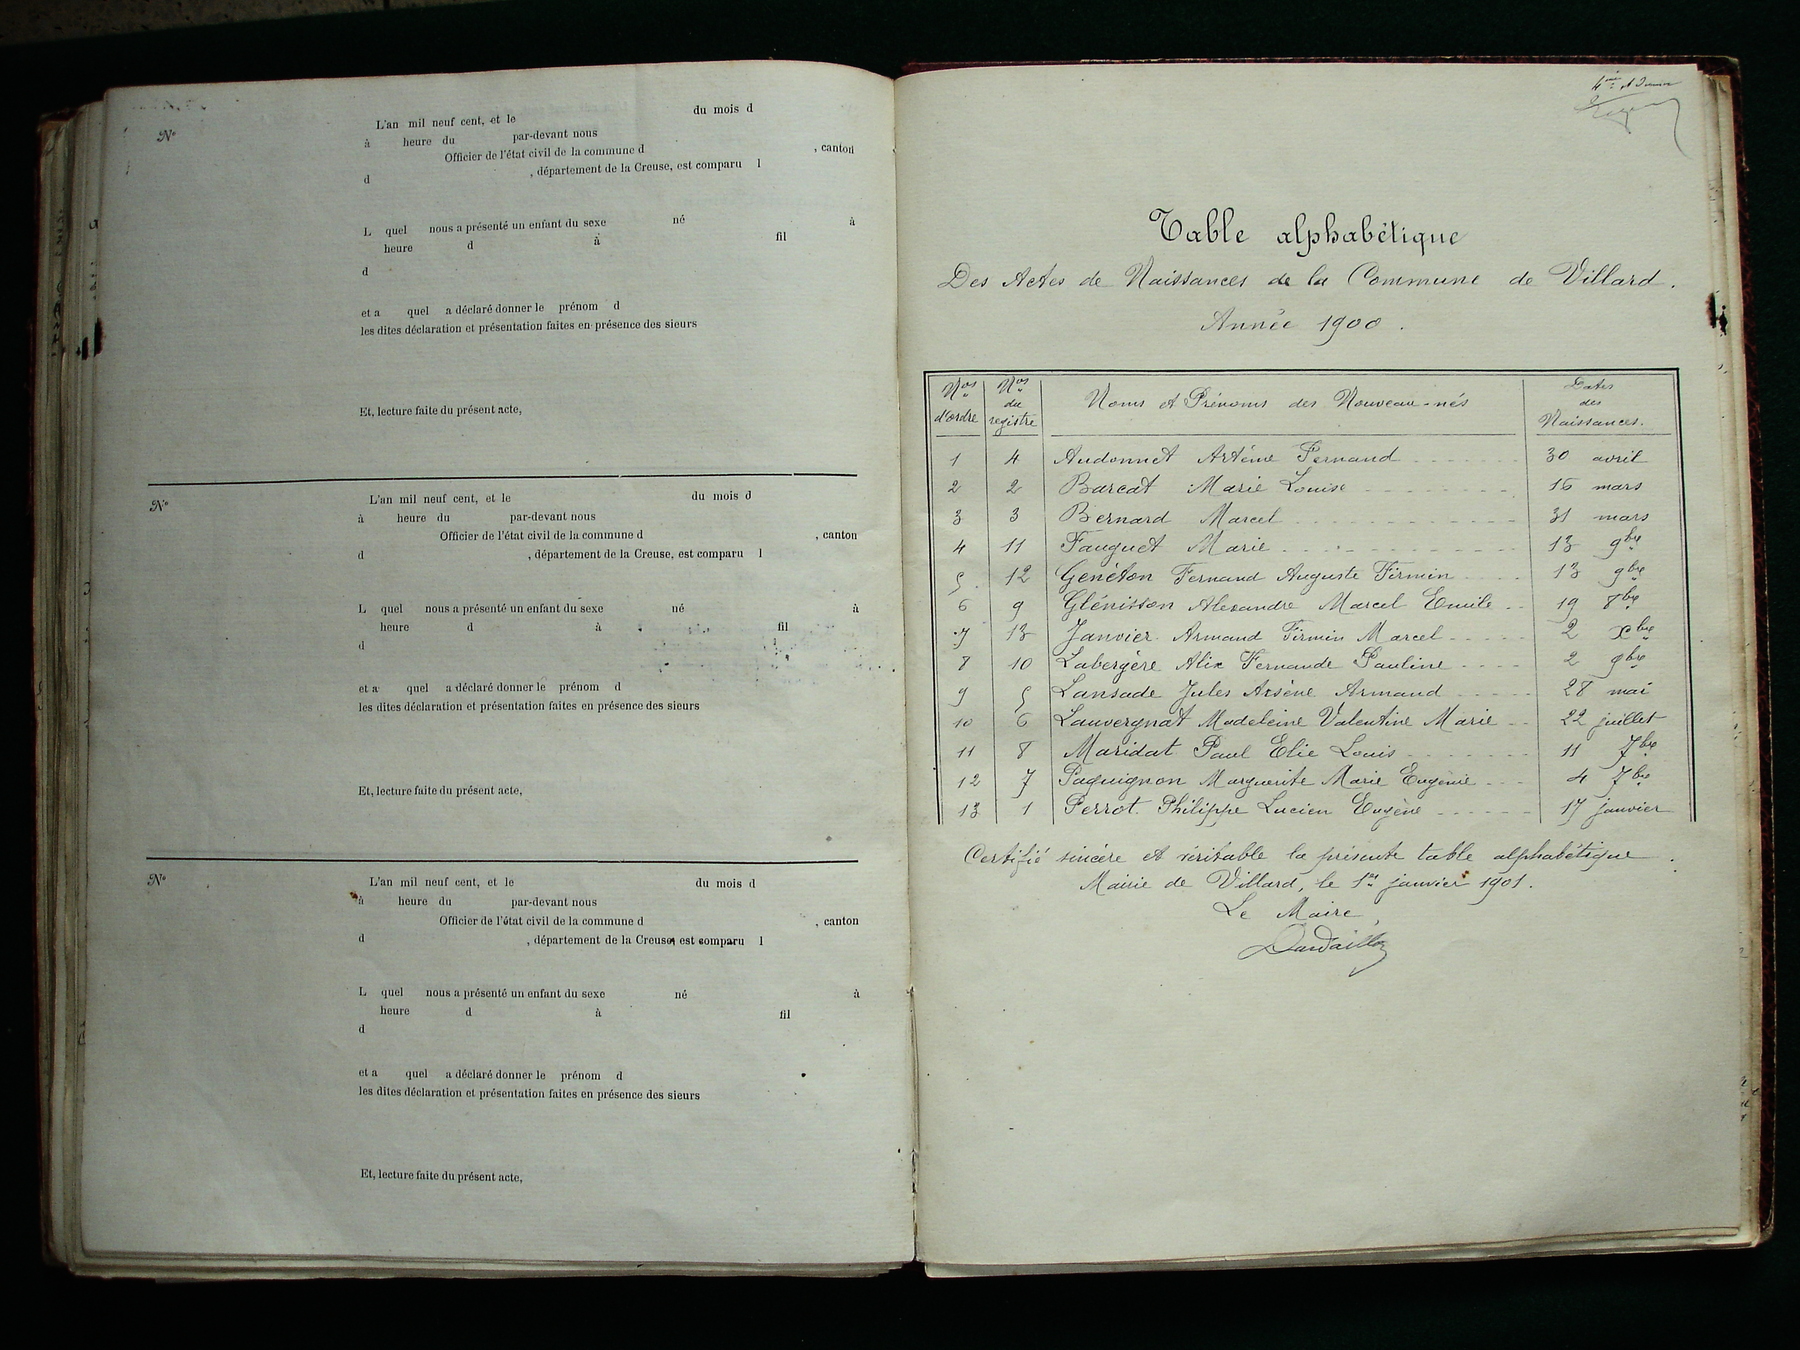 L'an mil neuf cent, et le du mois d
N° à heure du par-devant nous
Officier de l'état civil de la commune d , canton
d , département de la Creuse, est comparu l
L quel nous a présenté un enfant du sexe né à
heure d à fil
d
et a quel a déclaré donner le prénom d
les dites déclaration et présentation faites en présence des sieurs
Et, lecture faite du présent acte,
N° L'an mil neuf cent, et le du mois d
à heure du par-devant nous
Officier de l'état civil de la commune d , canton
d , département de la Creuse, est comparu l
L quel nous a présenté un enfant du sexe né à
heure d à fil
d
et a quel a déclaré donner le prénom d
les dites déclaration et présentation faites en présence des sieurs
Et, lecture faite du présent acte,
N° L'an mil neuf cent, et le du mois d
à heure du par-devant nous
Officier de l'état civil de la commune d , canton
d , département de la Creuse, est comparu l
L quel nous a présenté un enfant du sexe né à
heure d à fil
d
et a quel a déclaré donner le prénom d
les dites déclaration et présentation faites en présence des sieurs
Et, lecture faite du présent acte,
Table alphabétique
Des Actes de Naissances de la Commune de Villard.
Année 1900.
Nos d'ordre Nos du registre Noms et Prénoms des Nouveau-nés Dates des Naissances.
1 4 Audonnet Arsène Fernand 30 avril
2 2 Barcat Marie Louise 16 mars
3 3 Bernard Marcel 31 mars
4 11 Fauguet Marie 13 9bre
5 12 Genéton Fernand Auguste Firmin 13 9bre
6 9 Glénisson Alexandre Marcel Emile 19 8bre
7 13 Janvier Armand Firmin Marcel 2 Xbre
8 10 Labergère Alix Fernande Pauline 2 9bre
9 5 Lansade Jules Arsène Armand 28 mai
10 6 Lauvergnat Madeleine Valentine Marie 22 juillet
11 8 Maridat Paul Elie Louis 11 7bre
12 7 Paquignon Marguerite Marie Eugénie 4 7bre
13 1 Perrot Philippe Lucien Eugène 17 janvier
Certifié sincère et véritable la présente table alphabétique.
Mairie de Villard, le 1er janvier 1901.
Le Maire,